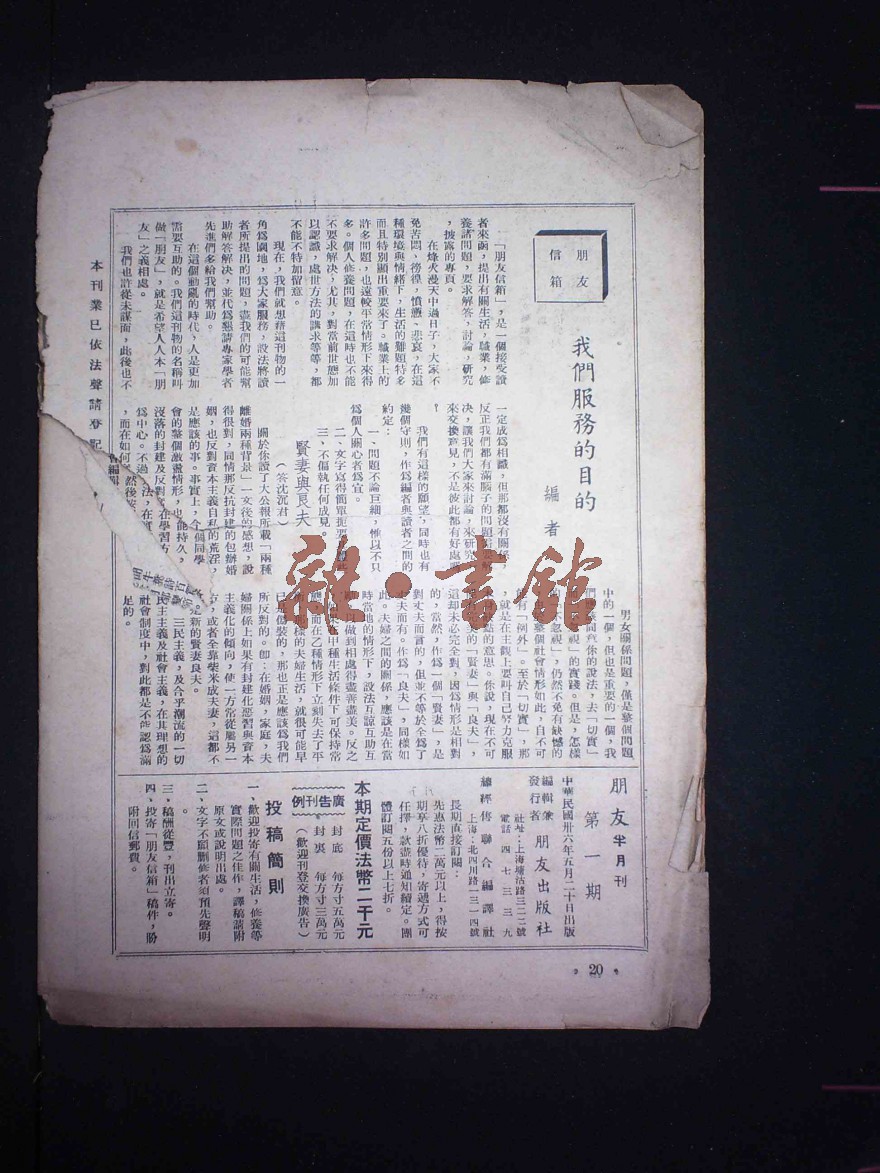 朋友
信箱
我們服務的目的
編者
「朋友信箱」，是一個接受讀
者來函，提出有關生活，職業，修
養諸問題，要求解答，討論，研究
，披露的專頁。
在烽火漫天中過日子，大家不
免苦悶、徬徨，憤懣、悲哀，在這
種環境與情緒下，生活的難題特多
而且特別顯出重要來了。職業上的
許多問題，也遠較平常情形下來得
多。個人修養問題，在這時也不能
不要求解决，尤其，對當前世態加
以認識，處世方法的講求等等，都
不能不特加留意。
現在，我們就想藉這刊物的一
角爲園地，爲大家服務，設法將讀
者所提出的問題，盡我們的可能幫
助解答解决，並代爲懇請專家學者
先進們多給我們幫助。
在這個動亂的時代，人是更加
需要互助的。我們這刊物的名稱叫
做「朋友」，就是希望人人本「朋
友」之義相處。
我們也許從未謀面，此後也不
一定成爲相識，但那都沒有關係，
反正我們都有滿腹子的問題需要解
决，讓我們大家來討論，來研究
來交換意見，不是彼此都有好處嗎
！
我們有這樣的願望，同時也有
幾個守則，作爲編者與讀者之間的
約定：
一、問題不論巨細，惟以不只
爲個人關心者爲宜。
二、文字寫得簡單扼要
三、不偏執任何成見。
賢妻與良夫
（答沈沉君）
關於你讀了大公報所載「兩種
離婚兩種背景」一文後的感想，說
得很對，同情那反抗封建的包辦婚
姻，也反對資本主義自私的荒淫，
是應該的事。事實上，今
會的整個激盪情形，也
沒落的封建及反對
爲中心。不過
，而在如何
男女關係問題，僅是整個問題
中的一個，但也是重要的一個，我
的，當然，作爲一個「賢妻」，是
對丈夫而言的，但並不等於全爲了
丈夫而有。作爲「良夫」，同樣如
此。夫婦之間的關係，應該是在當
時當地的情形下，設法互諒互助互
做到相處得盡善盡美。反之
甲種生活條件下可保持常
應，而在乙種情形下立刻失去了平
那樣的夫婦生活，就很可能早
已是僞裝的，那也正是應該爲我們
所反對的。卽：在婚姻，家庭，夫
婦關係上如果有封建化惡習與資本
主義化的傾向，使一方常從屬另一
方，或者全靠柴米成夫妻，這都不
新的賢妻良夫。
三民主義，及合乎潮流的一切
民主主義及社會主義，在其理想的
社會制度中，對此都是不能認爲滿
足的。
本刊業已依法聲請登記
朋友半月刊
第一期
中華民國卅六年五月二十日出版
編輯兼
發行者
朋友出版社
社址：上海塘沽路三二三號
電話 四七三三九
總經售 聯合編譯社
上海：北四川路一三一四號
長期直接訂閱：
先惠法幣二萬元以上，得按
期享八折優待，寄遞方式可
任擇，款盡時通知續定。團
體訂閱五份以上七折。
本期定價法幣二千元
廣告刊例
封底 每方寸五萬元
封裏 每方寸三萬元
（歡迎刊登交換廣告）
投稿簡則
一、歡迎投寄有關生活，修養等
實際問題之佳作，譯稿請附
原文或說明出處。
二、文字不願刪修者須預先聲明
。
三、稿酬從豐，刊出立寄。
四、投寄「朋友信箱」稿件，盼
附回信郵費。
20
雜·書館